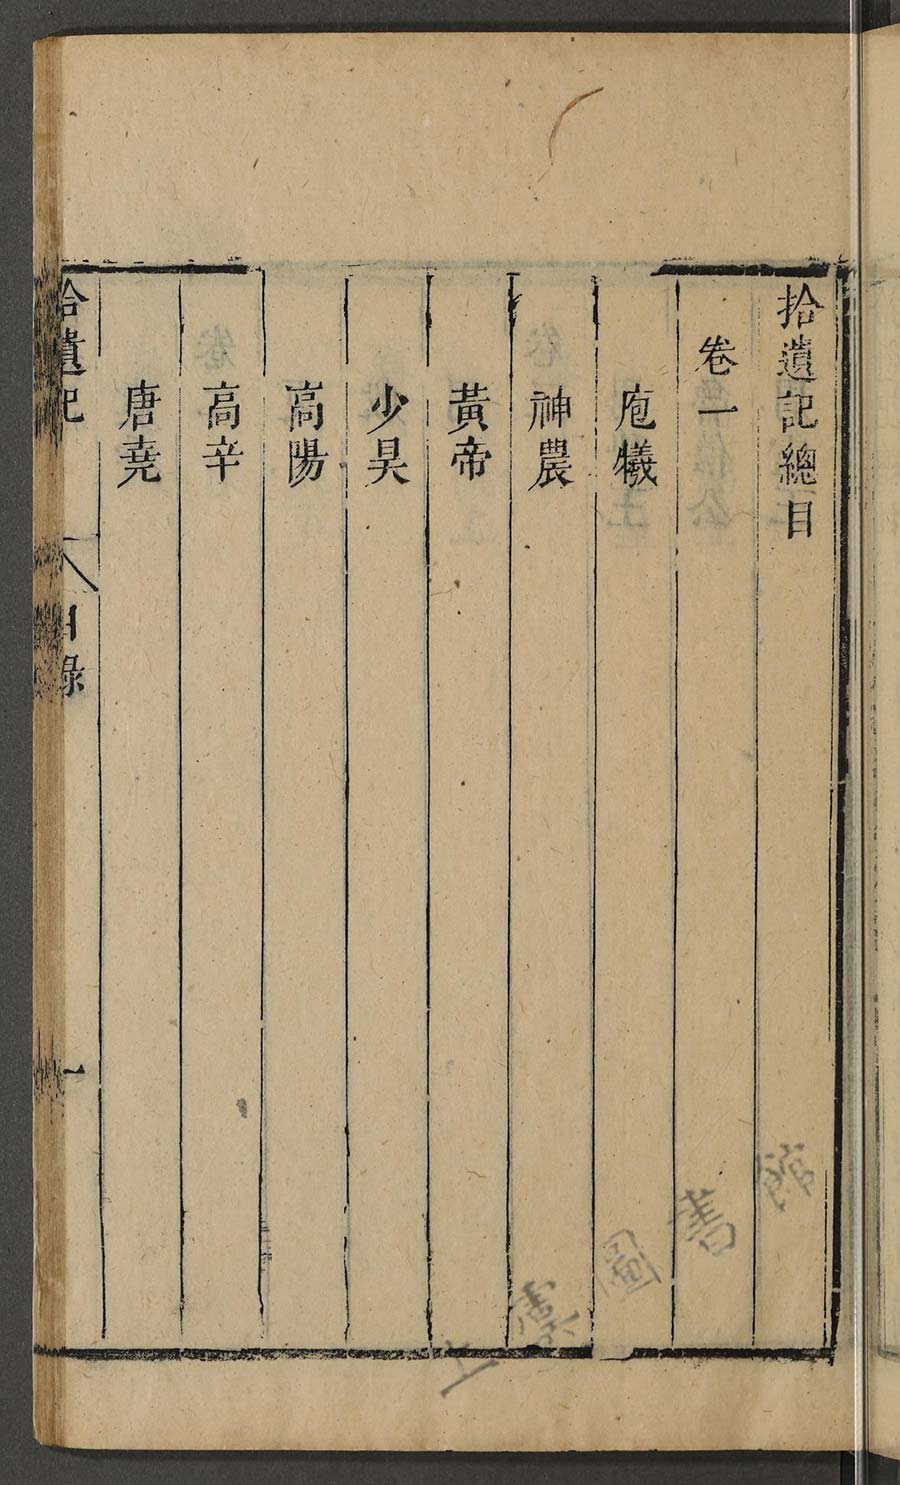 拾遺記總目
卷一
庖犧
神農
黃帝
少昊
高陽
高辛
唐堯
拾遺記
目錄
一
上虞圖書館